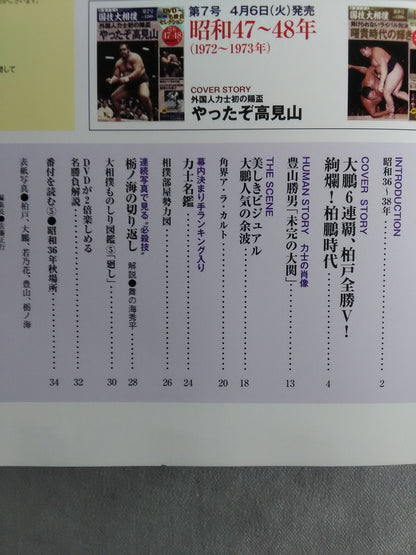 第7号 4月6日(火)発売
昭和47〜48年
(1972〜1973年)
COVER STORY
外国人力士初の賜盃
やったぞ高見山
国技大相撲
外国人力士初の賜盃
やったぞ高見山
INTRODUCTION
昭和36〜38年 2
COVER STORY
大鵬6連覇、柏戸全勝V!
絢爛!柏鵬時代 4
HUMAN STORY 力士の肖像
豊山勝男「未完の大関」 13
THE SCENE
美しきビジュアル
大鵬人気の余波 18
角界ア・ラ・カルト 20
幕内決まり手ランキング入り
力士名鑑 24
相撲部屋勢力図 26
連続写真で見る“必殺技”
栃ノ海の切り返し 解説●舞の海秀平 28
大相撲ものしり図鑑⑤「廻し」 30
DVDが2倍楽しめる
名勝負解説 32
番付を読む⑤●昭和36年秋場所 34
表紙写真●柏戸、大鵬、若乃花、豊山、栃ノ海